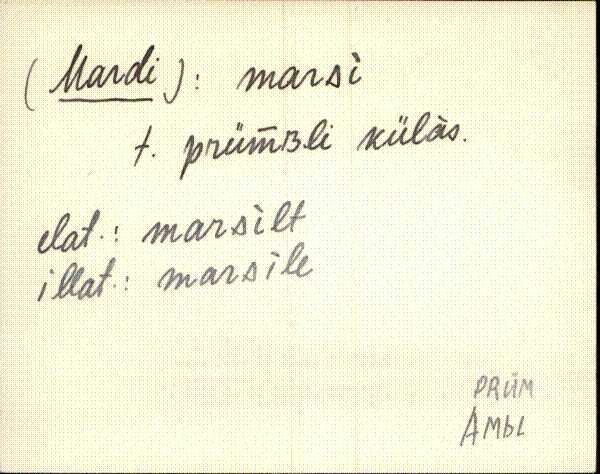 (Mardi): marsì
t. prüm̄ʙli külàs.
elat.: marsìlt
illat.: marsìle
PRÜM
AMbL